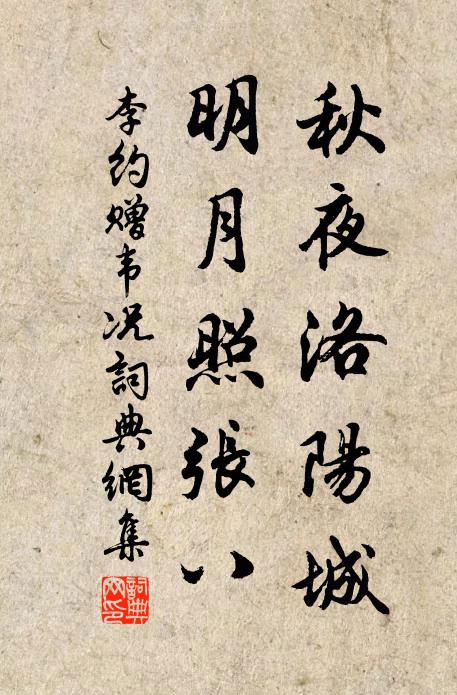 秋夜洛陽城
明月照張八
李約贈韦况詞典網集
詞典
网印